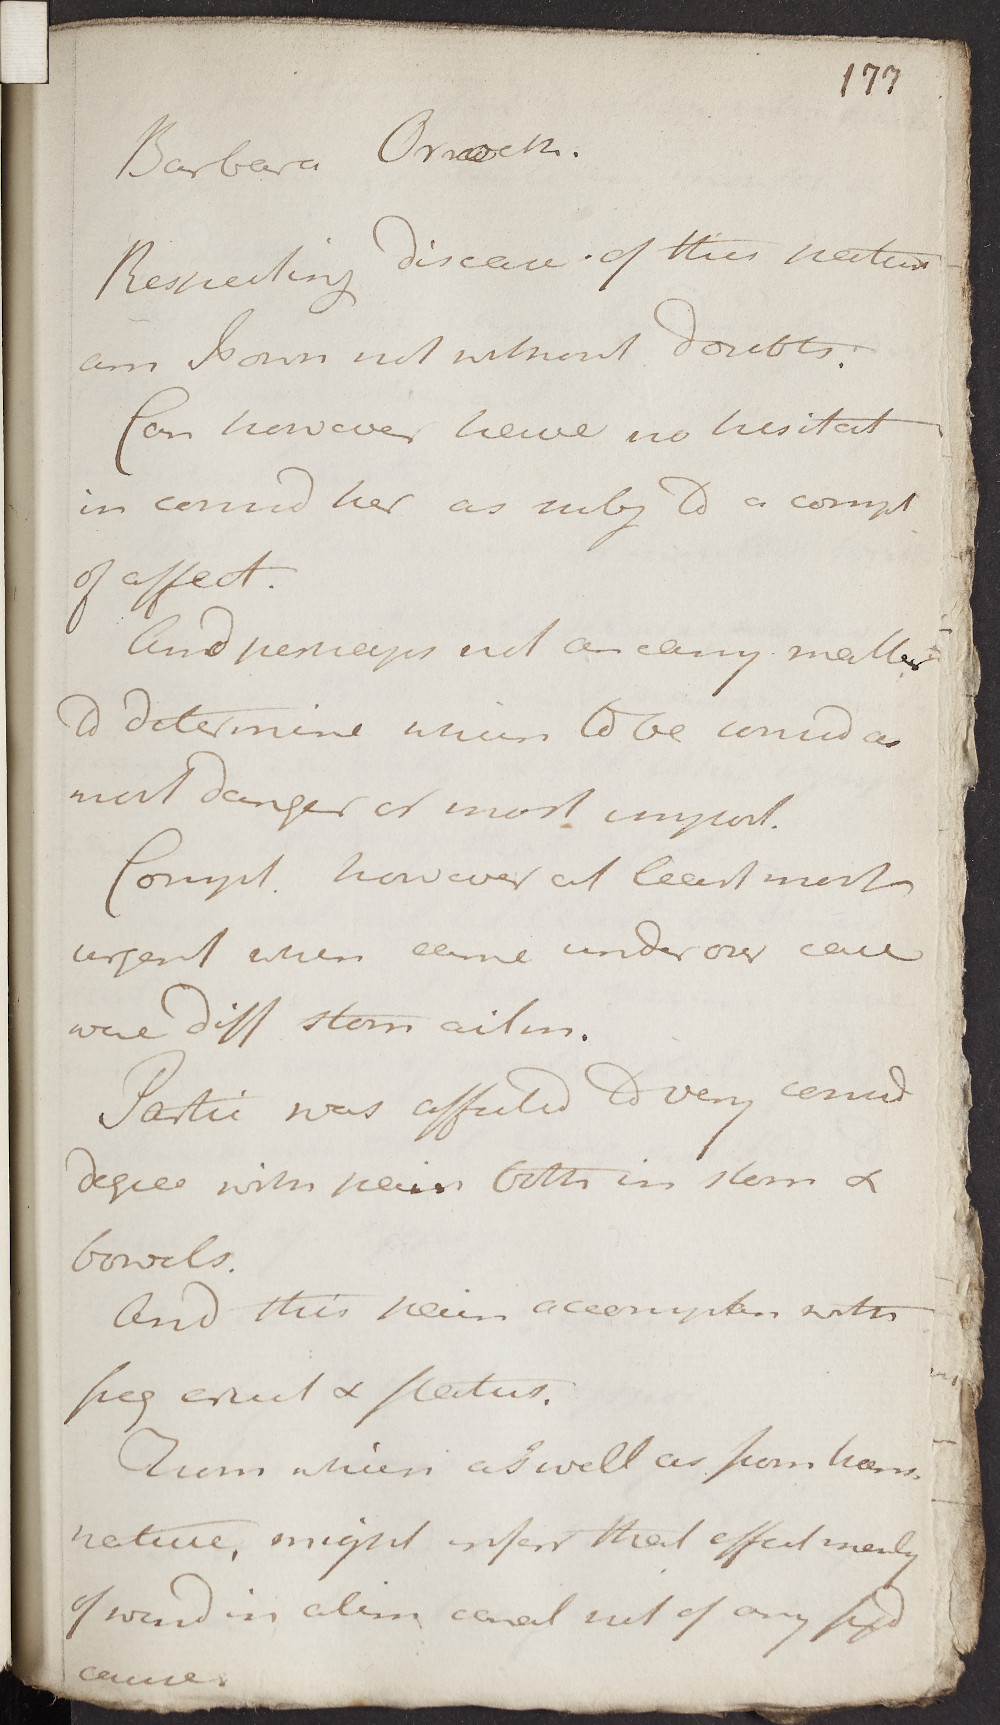 177
Barbara
Respecting disease of this nature
am I own not without doubts.
Can however have no hesitat
in consid her as subj to a compl
of affect.
And perhaps not an easy matter
to determine which to be consid as
most danger or most import.
Compl. however at least most
urgent when came under our care
were diff stom ailm.
Partic was affected to very consid
degree with pain both in stom &
bowels.
And this pain accompan with
freq eruct & flatus.
From which as well as from trans.
nature, might infer that effect merely
of wind in alim canal not of any fix'd
cause.